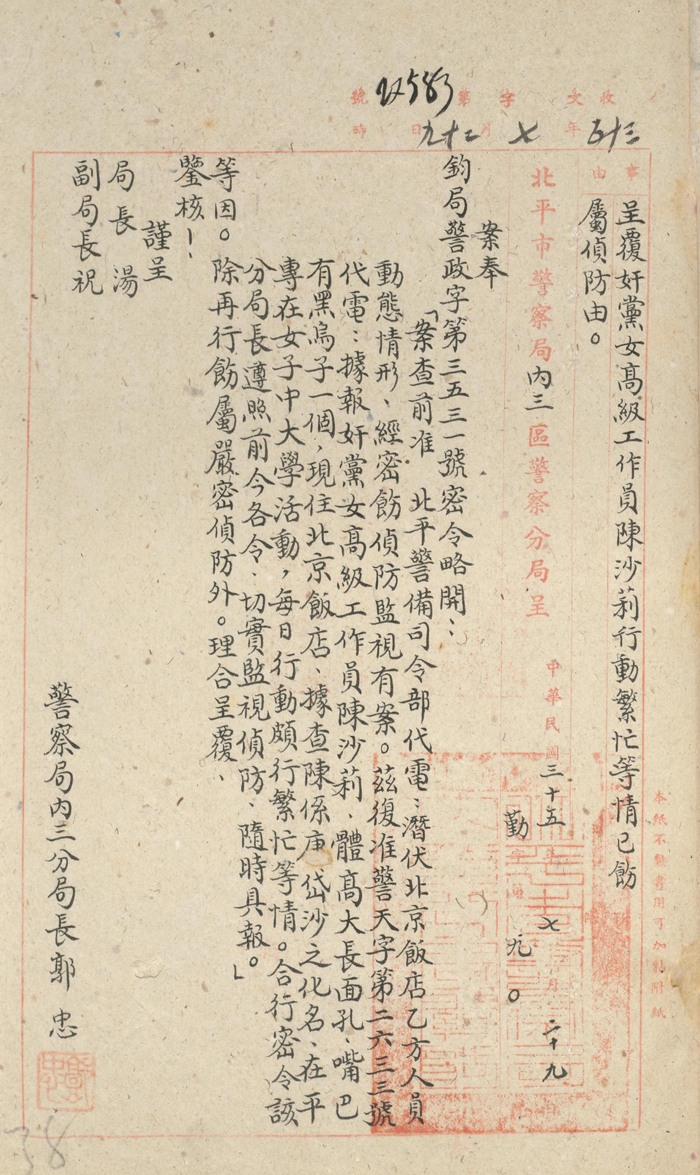 收文 字第 號
三十五年 七 月二十九日 時
事由
呈覆奸黨女高級工作員陳沙莉行動繁忙等情已飭
屬偵防由。
北平市警察局內三區警察分局呈
中華民國三十五年七月二十九日
勤 九 。
案奉
鈞局警政字第三五三一號密令略開：
「案查前准 北平警備司令部代電：潛伏北京飯店乙方人員
動態情形、經密飭偵防監視有案。茲復准警天字第二六三三號
代電：據報奸黨女高級工作員陳沙莉、體高大長面孔、嘴巴
有黑烏子一個，現住北京飯店、據查陳係庚岱沙之化名、在平
專在女子中大學活動，每日行動頗行繁忙等情。合行密令該
分局長遵照前今各令、切實監視偵防、隨時具報。」
等因。除再行飭屬嚴密偵防外。理合呈覆、
鑒核！
謹呈
局長湯
副局長祝
警察局內三分局長郭忠
本紙不敷書用可加製附紙
38